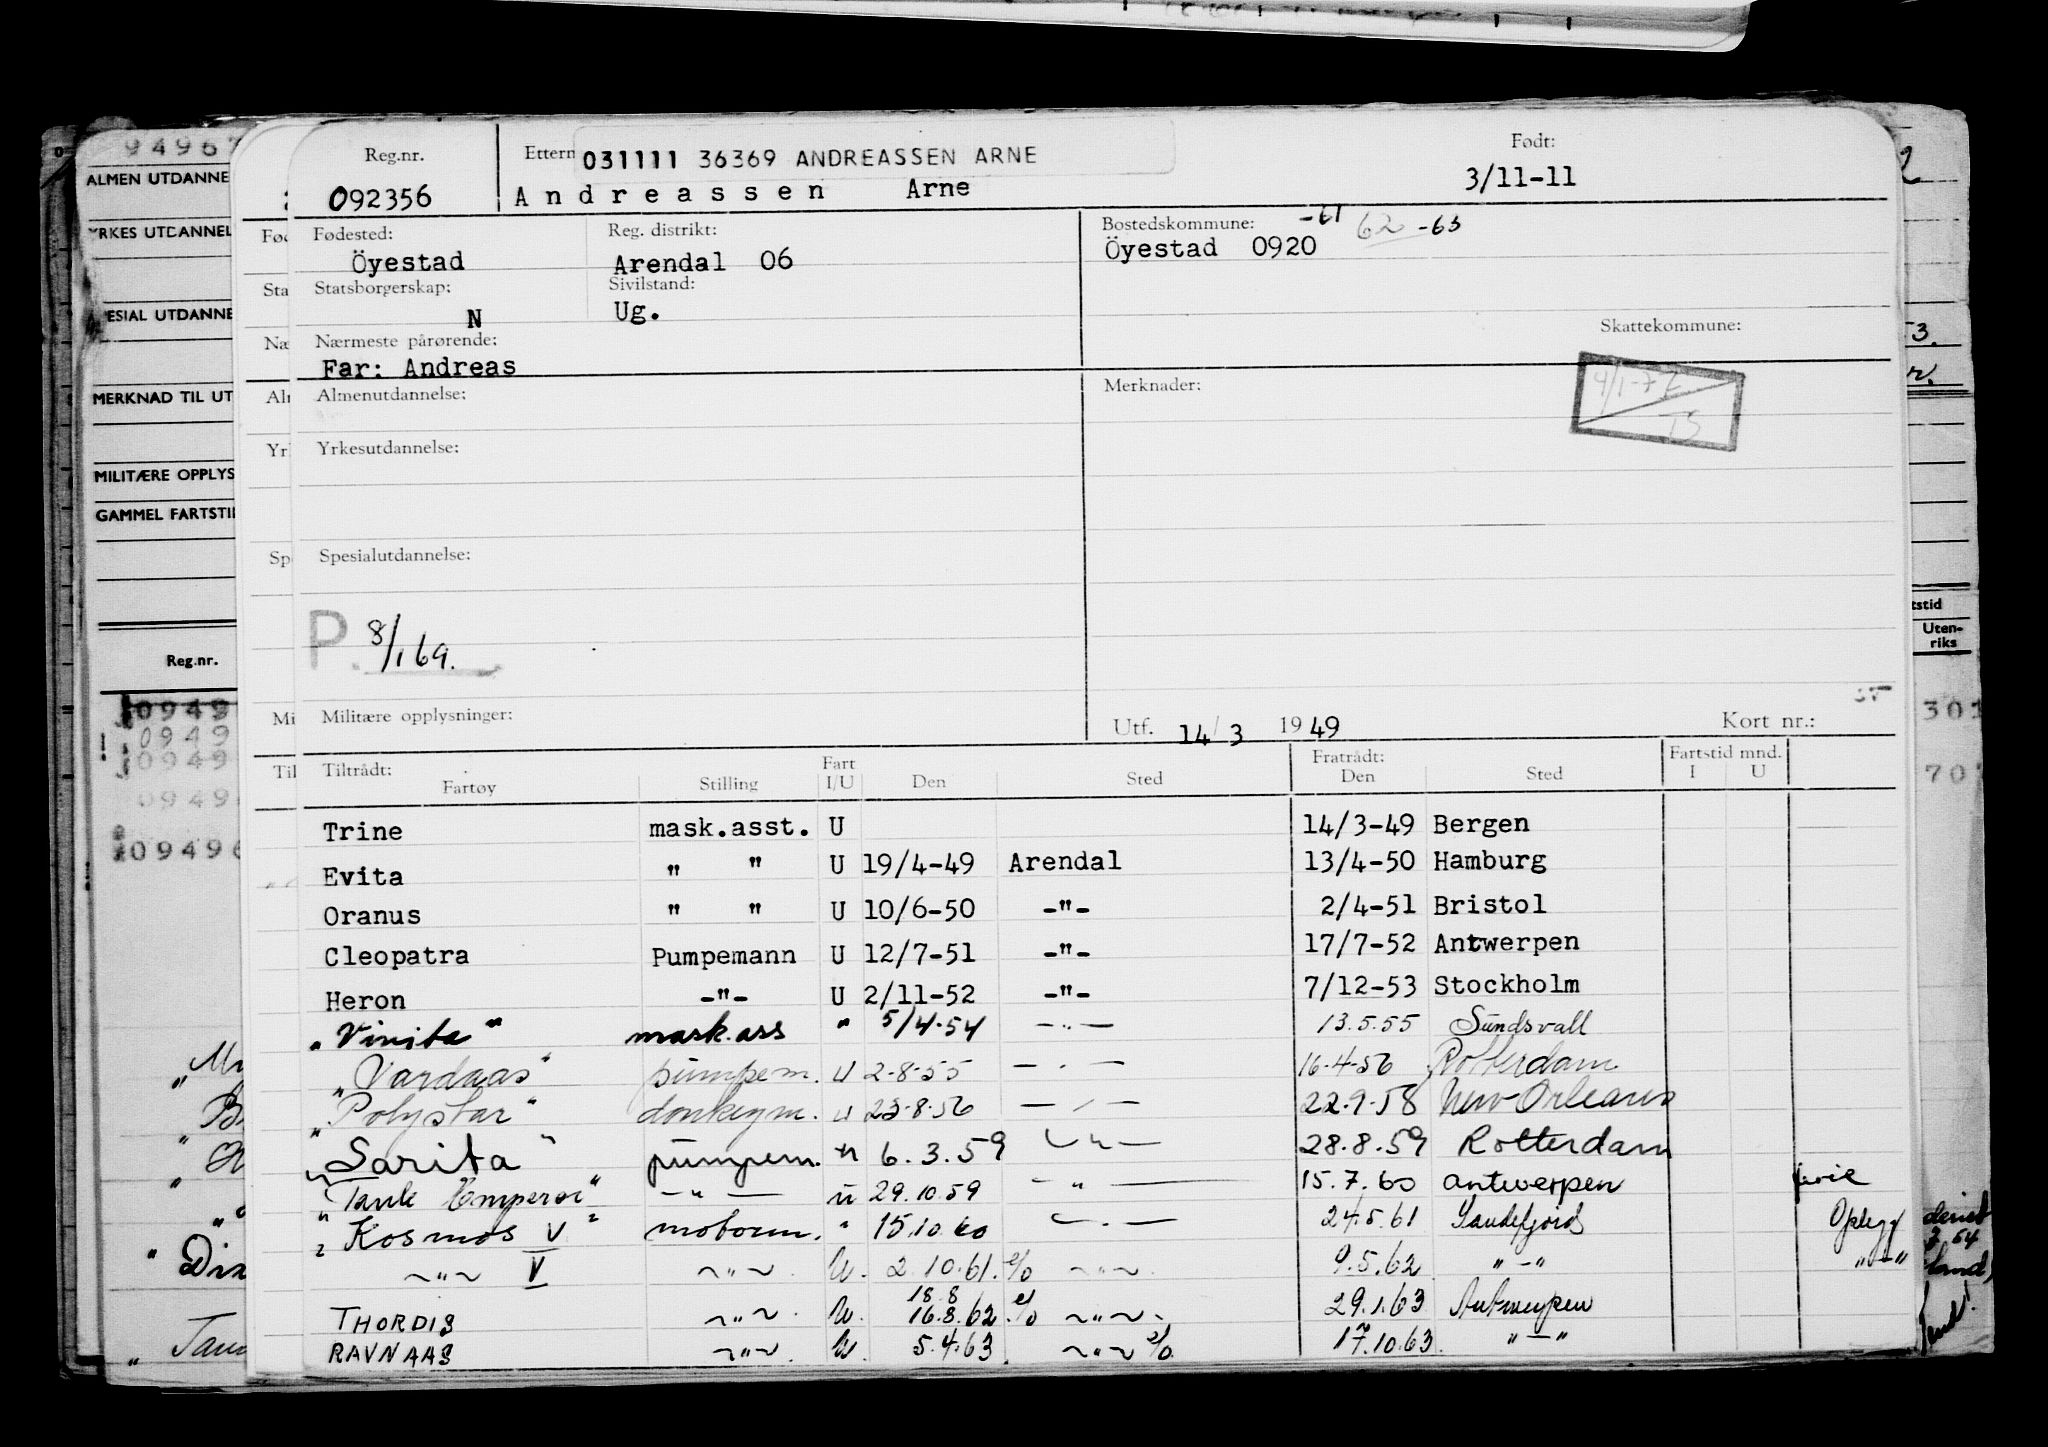 94967
ALMEN UTDANNE
YRKES UTDANNEL
SPESIAL UTDANNE
MERKNAD TIL UT
MILITÆRE OPPLYS
GAMMEL FARTSTID
Reg.nr.
0949
0949
0949
0949
09496
Reg.nr. Ettern 031111 36369 ANDREASSEN ARNE Født:
092356 Andreassen Arne 3/11-11
Fødested: Reg. distrikt: Bostedskommune: -61 62 -63
Öyestad Arendal 06 Öyestad 0920
Statsborgerskap: Sivilstand:
N Ug.
Nærmeste pårørende: Skattekommune:
Far: Andreas
Almenutdannelse: Merknader: 4/1-77
TS
Yrkesutdannelse:
Spesialutdannelse:
P. 8/1 69.
Militære opplysninger: Utf. 14/3 1949 Kort nr.:
Tiltrådt: Fart Fratrådt: Fartstid mnd.
Fartøy Stilling I/U Den Sted Den Sted I U
Trine mask.asst. U 14/3-49 Bergen
Evita " " U 19/4-49 Arendal 13/4-50 Hamburg
Oranus " " U 10/6-50 -"- 2/4-51 Bristol
Cleopatra Pumpemann U 12/7-51 -"- 17/7-52 Antwerpen
Heron -"- U 2/11-52 -"- 7/12-53 Stockholm
"Vinita" mask.ass " 5/4-54 -"- 13.5.55 Sundsvall
"Vardaas" pumpem. U 2-8-55 -"- 16-4-56 Rotterdam
"Polystar" donkeym. U 23-8-56 -"- 22.9.58 New Orleans
"Sarita" pumpem. " 6.3.59 -"- 28.8.59 Rotterdam
"Tank Emperor" -"- u 29.10.59 -"- 15.7.60 Antwerpen ferie
"Kosmos V" motorm. " 15.10.60 -"- 24.5.61 Sandefjord Oplegg
-"- V -"- U. 2.10.61. -"- 9.5.62 "-" "-"
THORDIS -"- U. 18.8 16.8.62 -"- 29.1.63 Antwerpen
RAVNAAS -"- U. 5.4.63 -"- 17.10.63. "-"